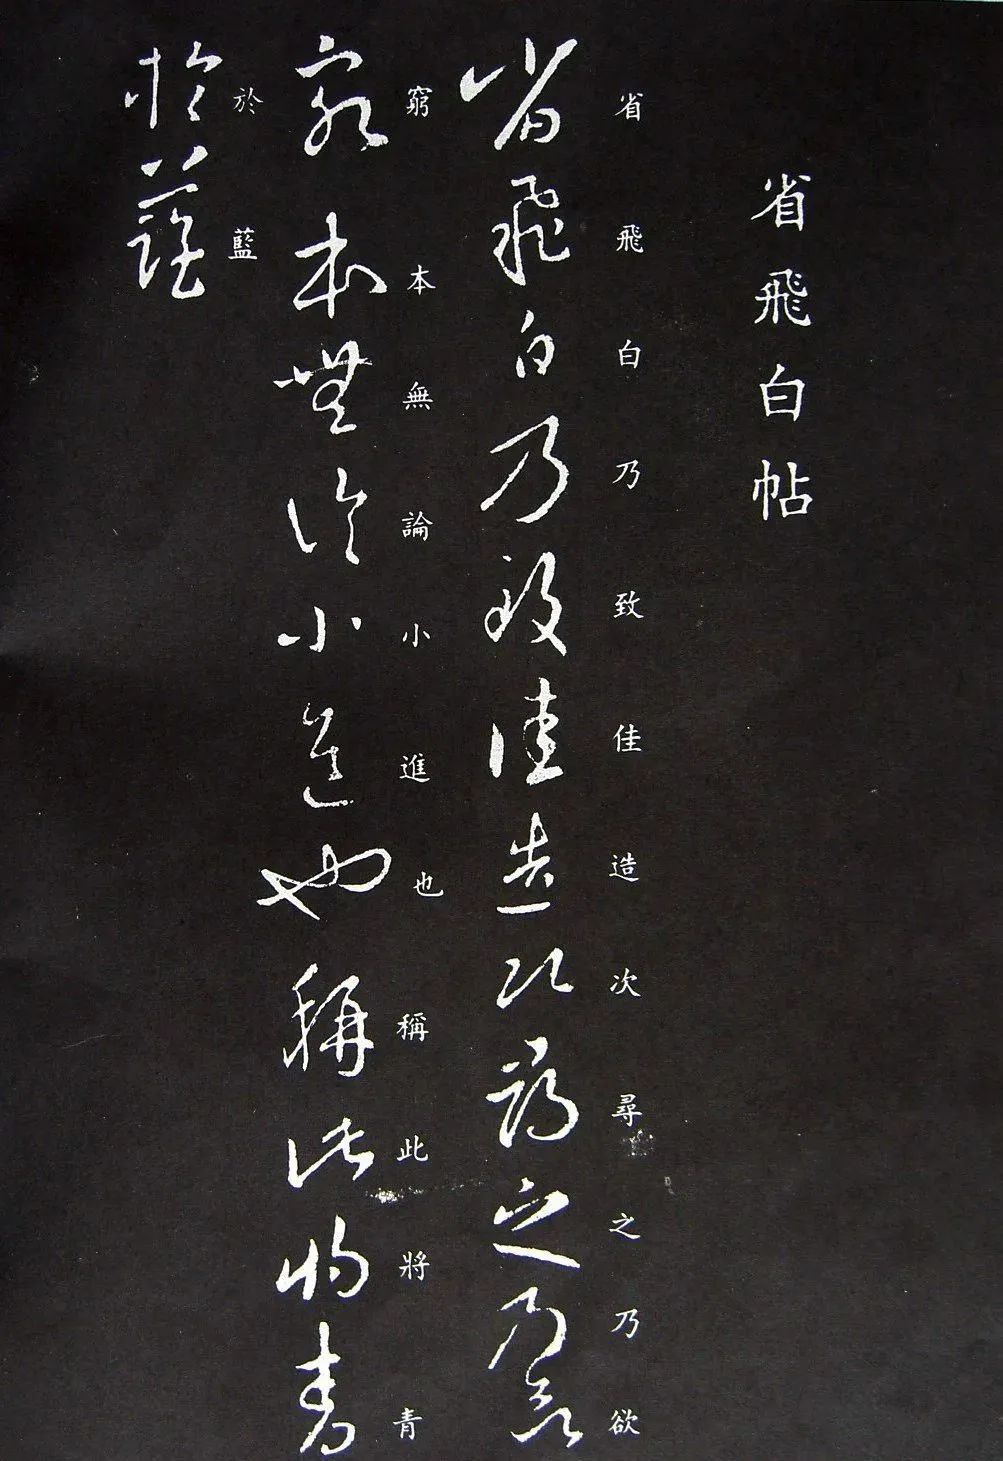 省飛白帖
省飛白乃致佳造次尋之乃欲
省飛白乃致佳造次尋之乃欲
窮本無論小進也稱此將青
窮本無論小進也稱此將青
於藍
於藍